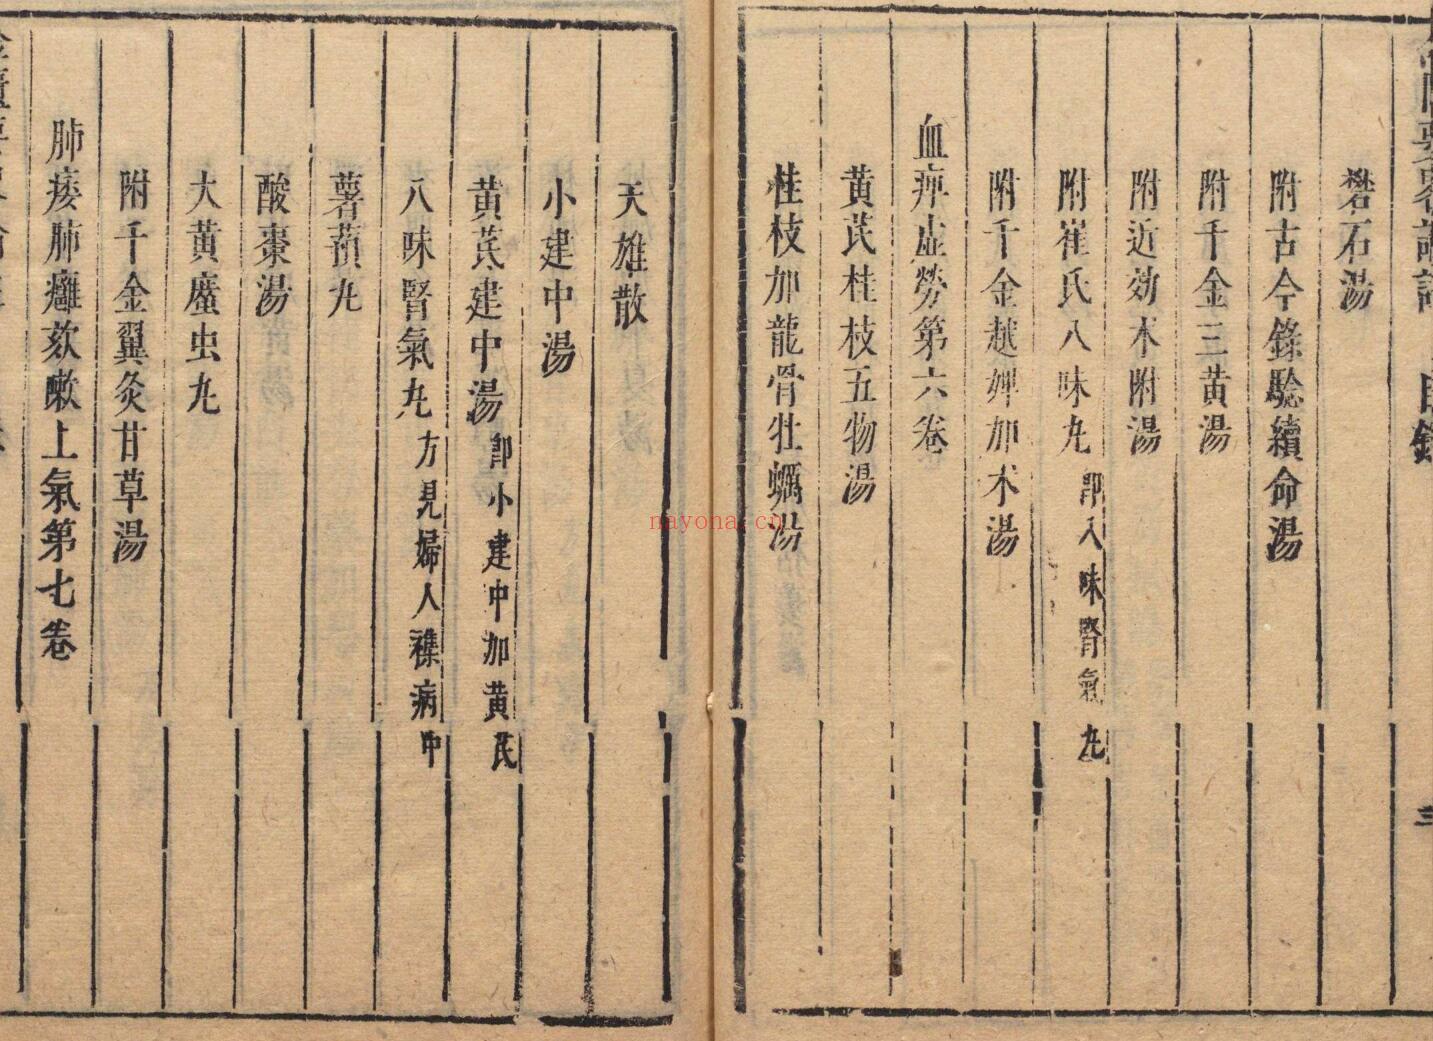 目錄
三
礬石湯
附古今錄驗續命湯
附千金三黃湯
附近効术附湯
附崔氏八味丸即八味腎氣丸
附千金越婢加术湯
血痺虛勞第六卷
黃芪桂枝五物湯
桂枝加龍骨牡蠣湯
天雄散
小建中湯
黃芪建中湯即小建中加黃芪
八味腎氣丸方見婦人襍病中
薯蕷丸
酸棗湯
大黃䗪虫丸
附千金翼灸甘草湯
肺痿肺癰欬嗽上氣第七卷
nayona.cn